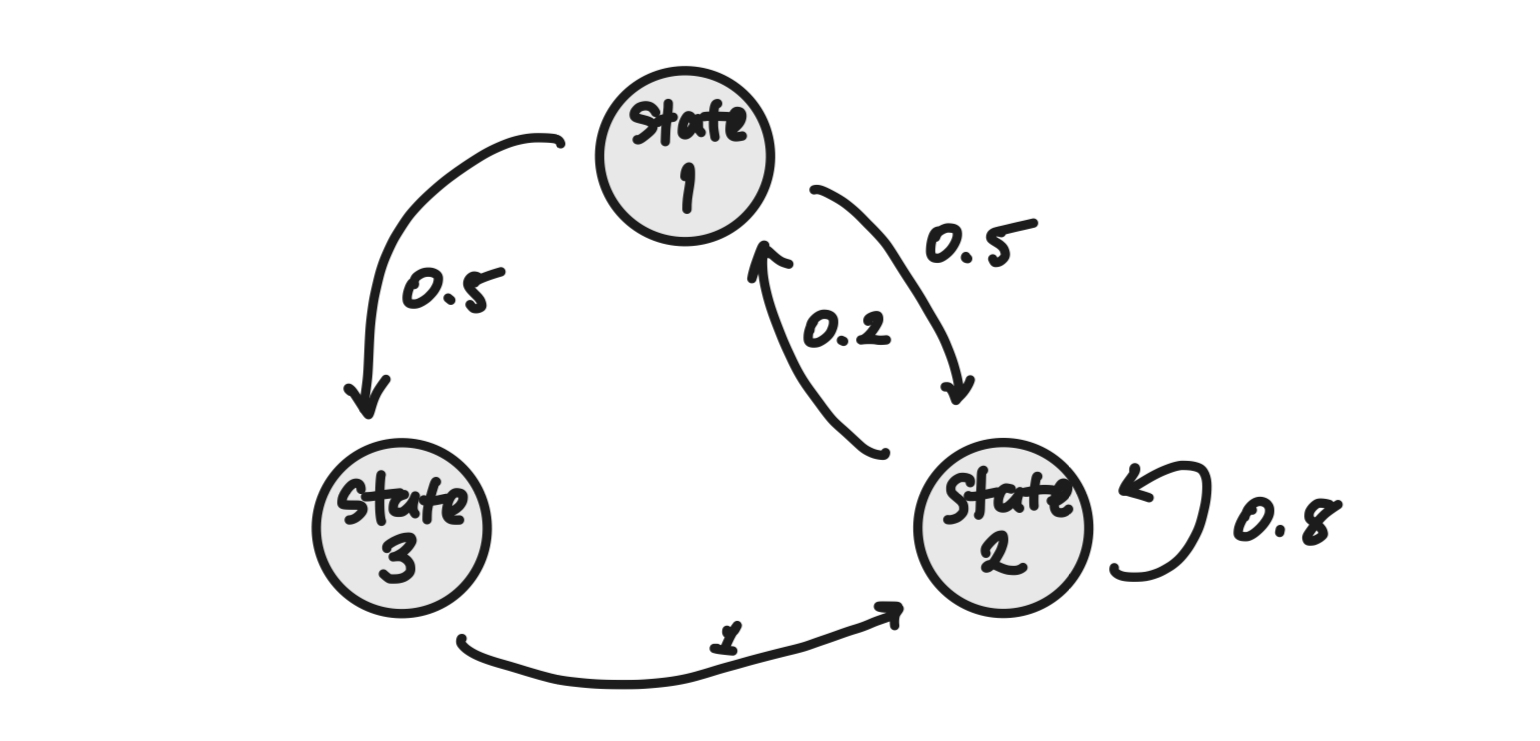 State
1
0.5
0.5
0.2
State
3
State
2
0.8
1